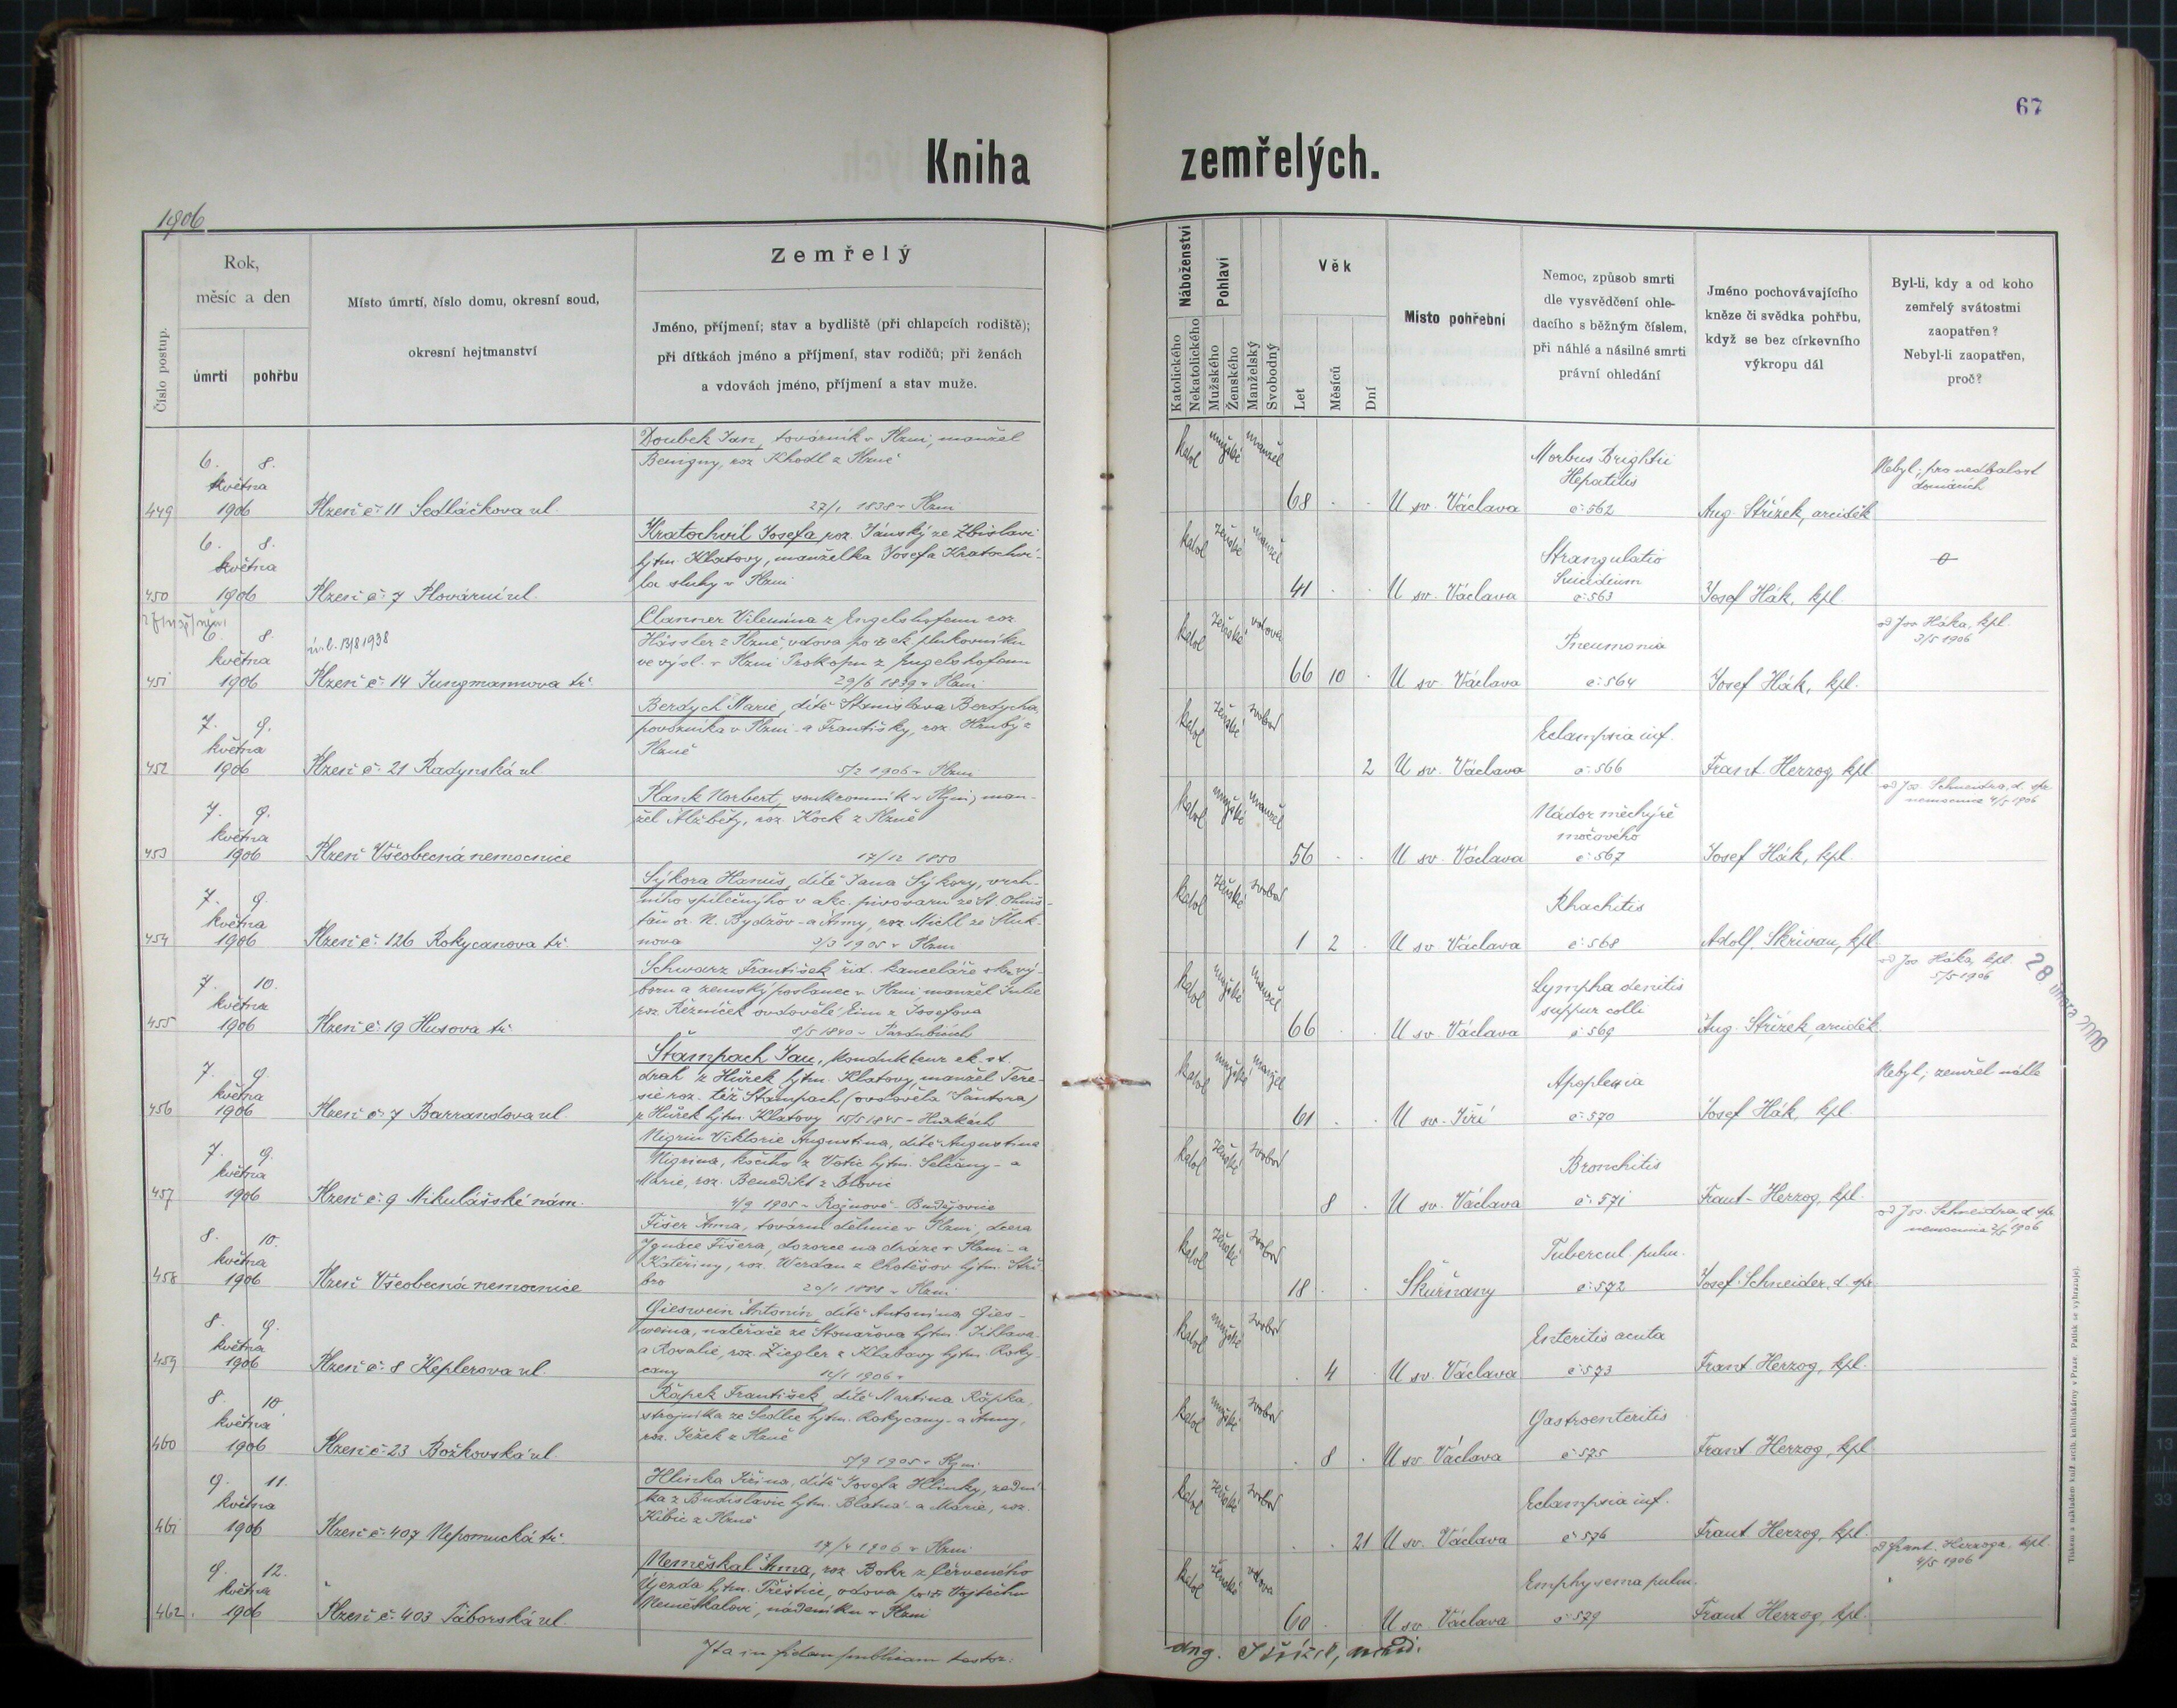 67
Kniha zemřelých.
1906
Číslo postup.
Rok,
měsíc a den
úmrtí
pohřbu
Místo úmrtí, číslo domu, okresní soud,
okresní hejtmanství
Zemřelý
Jméno, příjmení; stav a bydliště (při chlapcích rodiště);
při dítkách jméno a příjmení, stav rodičů; při ženách
a vdovách jméno, příjmení a stav muže.
Náboženství
Katolického
Nekatolického
Pohlaví
Mužského
Ženského
Manželský
Svobodný
Věk
Let
Měsíců
Dní
Místo pohřební
Nemoc, způsob smrti
dle vysvědčení ohle-
dacího s běžným číslem,
při náhlé a násilné smrti
právní ohledání
Jméno pochovávajícího
kněze či svědka pohřbu,
když se bez církevního
výkropu dál
Byl-li, kdy a od koho
zemřelý svátostmi
zaopatřen?
Nebyl-li zaopatřen,
proč?
449
6. 8.
května
1906
Plzeň č: 11 Sedláčkova ul.
Doubek Jan, továrník v Plzni, manžel
Benigny, roz. Khodl z Plzně
27/1 1838 v Plzni
katol mužské manžel
68
U sv. Václava
Morbus Brightii
Hepatitis
č: 562
Aug. Střízek, arciděk
Nebyl; pro nedbalost
domácích
450
6. 8.
května
1906
Plzeň č: 7 Plovární ul.
Kratochvil Josefa, roz. Jánský ze Zbislavi
hjtm. Klatovy, manželka Josefa Kratochví-
la sluhy v Plzni
katol ženské manžel
41
U sv. Václava
Strangulatio
Suicidium
č: 563
Josef Hák, kpl.
0
451
6. 8.
května
1906
úř. l. 13/8 1938
Plzeň č: 14 Jungmannova tř.
Clanner Vilemína z Engelshofenu roz.
Hässler z Plzně, vdova po ck. plukovníku
ve výsl. v Plzni Prokopu z Engelshofenu
29/6 1839 v Plzni
katol ženské vdova
66 10
U sv. Václava
Pneumonia
č: 564
Josef Hák, kpl.
od Jos. Háka, kpl.
3/5 1906
452
7. 9.
května
1906
Plzeň č: 21 Radynská ul.
Berdych Marie, dítě Stanislava Berdycha,
povozníka v Plzni a Františky, roz. Hrubý z
Plzně
5/5 1906 v Plzni
katol ženské svobod
2
U sv. Václava
Eclampsia inf.
č: 566
Frant. Herzog, kpl.
453
7. 9.
května
1906
Plzeň Všeobecná nemocnice
Plank Norbert, soukromník v Plzni, man-
žel Alžběty, roz. Kock z Plzně
17/12 1850
katol mužské manžel
56
U sv. Václava
Nádor měchýře
močového
č: 567
Josef Hák, kpl.
od Jos. Schneidra, d. spr.
nemocnice 4/5 1906
454
7. 9.
května
1906
Plzeň č: 126 Rokycanova tř.
Sýkora Hanuš, dítě Jana Sýkory, vrch-
ního spílečného v akc. pivovaru ze St. Ohniš-
ťan o. N. Bydžov a Anny, roz. Michl ze Šluk-
nova
3/3 1905 v Plzni
katol ženské svobod
1 2
U sv. Václava
Rhachitis
č: 568
Adolf Skřivan, kpl.
455
7. 10.
května
1906
Plzeň č: 19 Husova tř.
Schwarz František řid. kanceláře okr. vý-
boru a zemský poslanec v Plzni, manžel Julie
roz. Řezníček ovdovělé Eim z Josefova
8/5 1840 v Pardubicích
katol mužské manžel
66
U sv. Václava
Lymphadenitis
suppur colli
č: 569
Aug. Střízek, arciděk
od Jos. Háka, kpl.
5/5 1906
28. února 2000
456
7. 9.
května
1906
Plzeň č: 7 Barrandova ul.
Štampach Jan, kondukteur ck. st.
drah z Hůrek hjtm. Klatovy, manžel Tere-
sie roz. též Štampach (ovdověla Šantora)
z Hůrek hjtm. Klatovy 15/5 1845 v Hůrkách
katol mužské manžel
61
U sv. Jiří
Apoplexia
č: 570
Josef Hák, kpl.
Nebyl; zemřel náhle
457
7. 9.
května
1906
Plzeň č: 9 Mikulášské nám.
Nigrin Viktorie Augustina, dítě Augustina
Nigrina, kočího z Votic hjtm. Selčany a
Marie, roz. Benedikt z Blovic
4/9 1905 v Rožnově Budějovice
katol ženské svobod
8
U sv. Václava
Bronchitis
č: 571
Frant. Herzog, kpl.
458
8. 10.
května
1906
Plzeň Všeobecná nemocnice
Fišer Anna, tovární dělnice v Plzni, dcera
Ignáce Fišera, dozorce na dráze v Plzni a
Kateřiny, roz. Werdan z Chotěšov hjtm. Stří-
bro
20/1 1888 v Plzni
katol ženské svobod
18
Skurňany
Tubercul. pulm.
č: 572
Josef Schneider, d. spr.
od Jos. Schneidra, d. spr.
nemocnice 2/5 1906
459
8. 9.
května
1906
Plzeň č: 8 Keplerova ul.
Gieswein Antonín, dítě Antonína Gies-
weina, natěrače ze Stonařova hjtm. Jihlava
a Rosalie, roz. Ziegler z Klabavy hjtm. Roky-
cany
katol mužské svobod
4
U sv. Václava
Enteritis acuta
č: 573
Frant. Herzog, kpl.
460
8. 10.
května
1906
Plzeň č: 23 Božkovská ul.
Řápek František, dítě Martina Řápka,
strojníka ze Sedlce hjtm. Rokycany a Anny,
roz. Ježek z Plzně
5/9 1905 v Plzni
katol mužské svobod
8
U sv. Václava
Gastroenteritis
č: 575
Frant. Herzog, kpl.
461
9. 11.
května
1906
Plzeň č: 407 Nepomucká tř.
Hlinka Jiřina, dítě Josefa Hlinky, zední-
ka z Budislavic hjtm. Blatná a Marie, roz.
Kibic z Plzně
17/4 1906 v Plzni
katol ženské svobod
21
U sv. Václava
Eclampsia inf.
č: 576
Frant. Herzog, kpl.
462.
9. 12.
května
1906
Plzeň č: 403 Táborská ul.
Nemeškal Anna, roz. Bokr z Červeného
Újezda hjtm. Přeštice, vdova po † Vojtěchu
Nemeškalovi, nádeníku v Plzni
katol ženské vdova
60
U sv. Václava
Emphysema pulm.
č: 579
Frant. Herzog, kpl.
od Frant. Herzoga, kpl.
4/5 1906
Ita in fidem publicam testor:
Aug. Střízek, arcid.
Tiskem a nákladem kníž. arcib. knihtiskárny v Praze. Patisk se vyhrazuje.